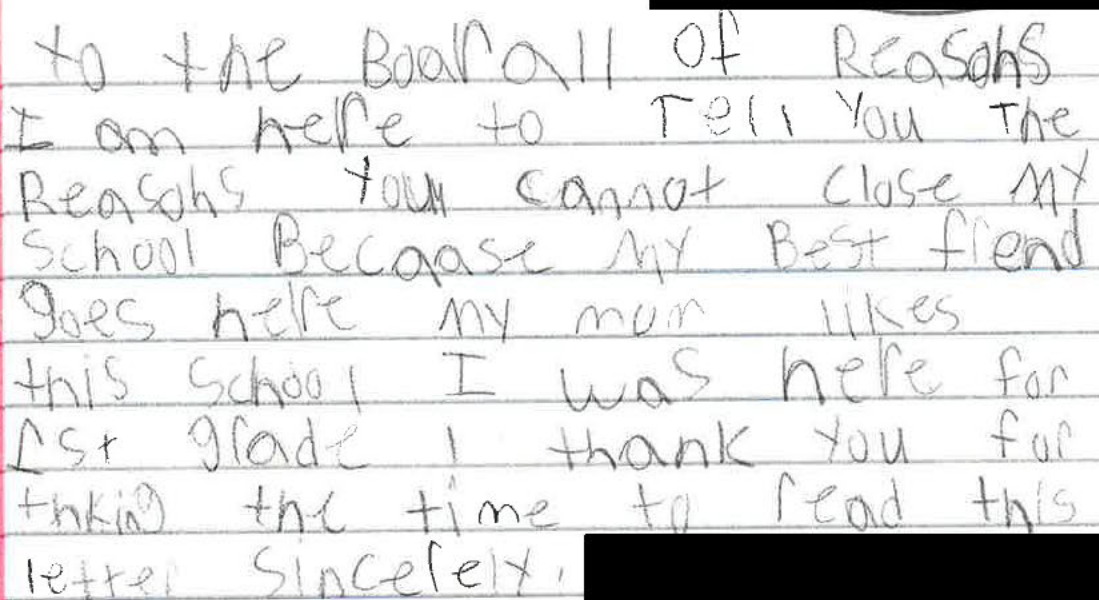 to the Boarall Of Reasons
I am here to Tell You The
Reasons Youu cannot close MY
School Becaase MY Best friend
goes here MY mum likes
this School I was here for
1st grade I thank You for
tnking the time to read this
letter Sincerely,